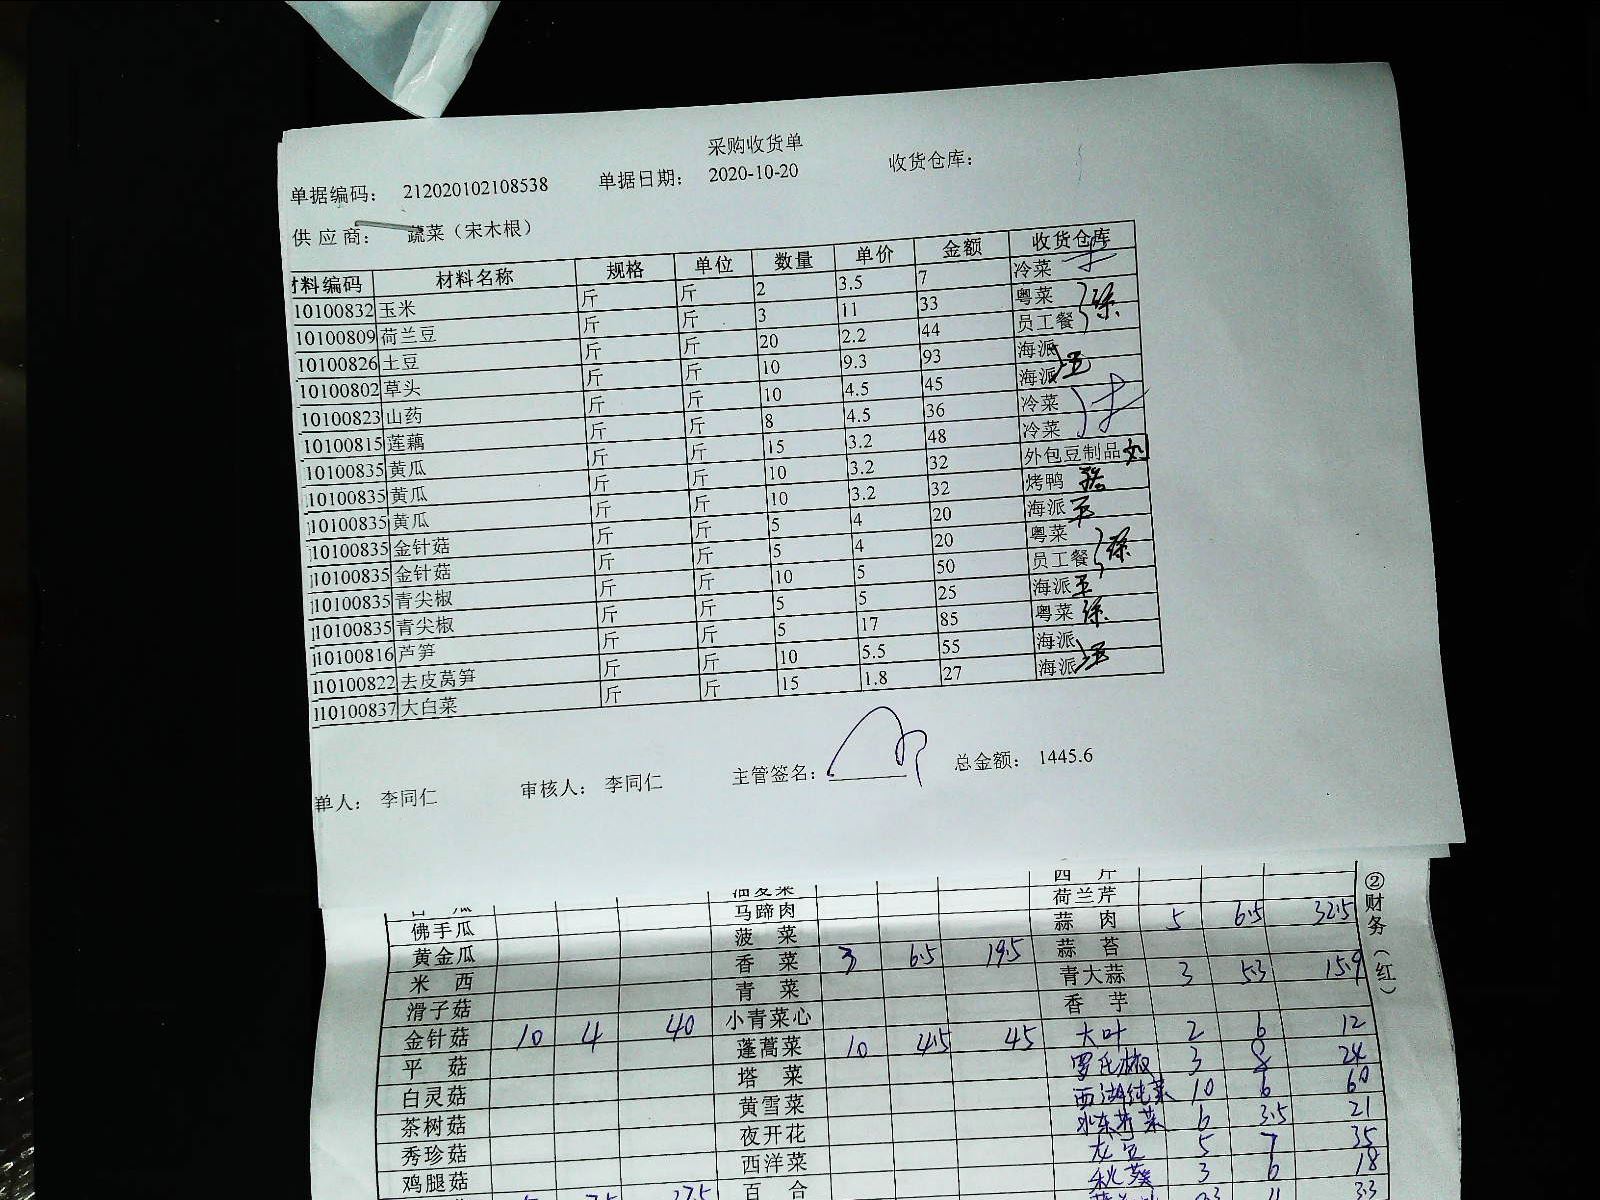 采购收货单
单据编码： 212020102108538 单据日期： 2020-10-20 收货仓库：
供应商： 蔬菜（宋木根）
材料编码 材料名称 规格 单位 数量 单价 金额 收货仓库
10100832 玉米 斤 斤 2 3.5 7 冷菜
10100809 荷兰豆 斤 斤 3 11 33 粤菜 徐
10100826 土豆 斤 斤 20 2.2 44 员工餐
10100802 草头 斤 斤 10 9.3 93 海派
10100823 山药 斤 斤 10 4.5 45 海派
10100815 莲藕 斤 斤 8 4.5 36 冷菜
10100835 黄瓜 斤 斤 15 3.2 48 冷菜
10100835 黄瓜 斤 斤 10 3.2 32 外包豆制品
10100835 黄瓜 斤 斤 10 3.2 32 烤鸭
10100835 金针菇 斤 斤 5 4 20 海派
10100835 金针菇 斤 斤 5 4 20 粤菜 徐
10100835 青尖椒 斤 斤 10 5 50 员工餐
10100835 青尖椒 斤 斤 5 5 25 海派
10100816 芦笋 斤 斤 5 17 85 粤菜 徐
10100822 去皮莴笋 斤 斤 10 5.5 55 海派
10100837 大白菜 斤 斤 15 1.8 27 海派
单人： 李同仁 审核人： 李同仁 主管签名： 总金额： 1445.6
②财务（红）
油麦菜 西芹
佛手瓜 马蹄肉 荷兰芹
黄金瓜 菠菜 蒜肉 5 6.5 32.5
米西 香菜 3 6.5 19.5 蒜苔
滑子菇 青菜 青大蒜 3 5.3 15.9
金针菇 10 4 40 小青菜心 香芋
平菇 蓬蒿菜 10 4.5 45 大叶 2 6 12
白灵菇 塔菜 罗氏椒 3 8 24
茶树菇 黄雪菜 西湖纯菜 10 6 60
秀珍菇 夜开花 6 3.5 21
鸡腿菇 西洋菜 龙豆 5 7 35
百合 秋葵 3 6 18
11 33